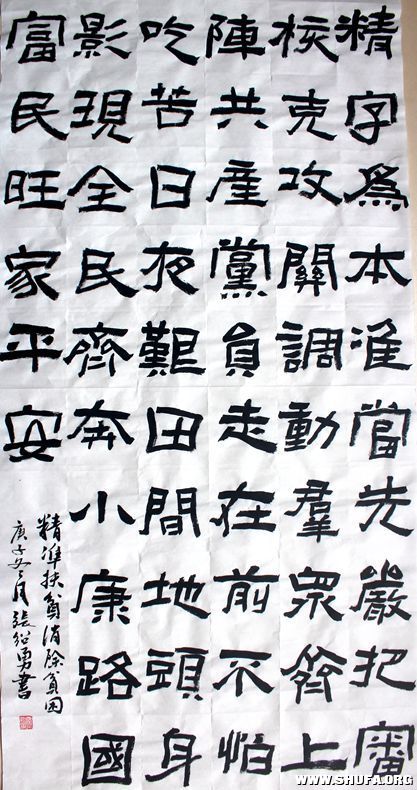 精字為本准當先嚴把審
核克攻關調動羣眾齊上
陣共產黨員走在前不怕
吃苦日夜艱田間地頭身
影現全民齊奔小康路國
富民旺家平安
精準扶貧消除貧困
庚子月張紹勇書
WWW.SHUFA.ORG